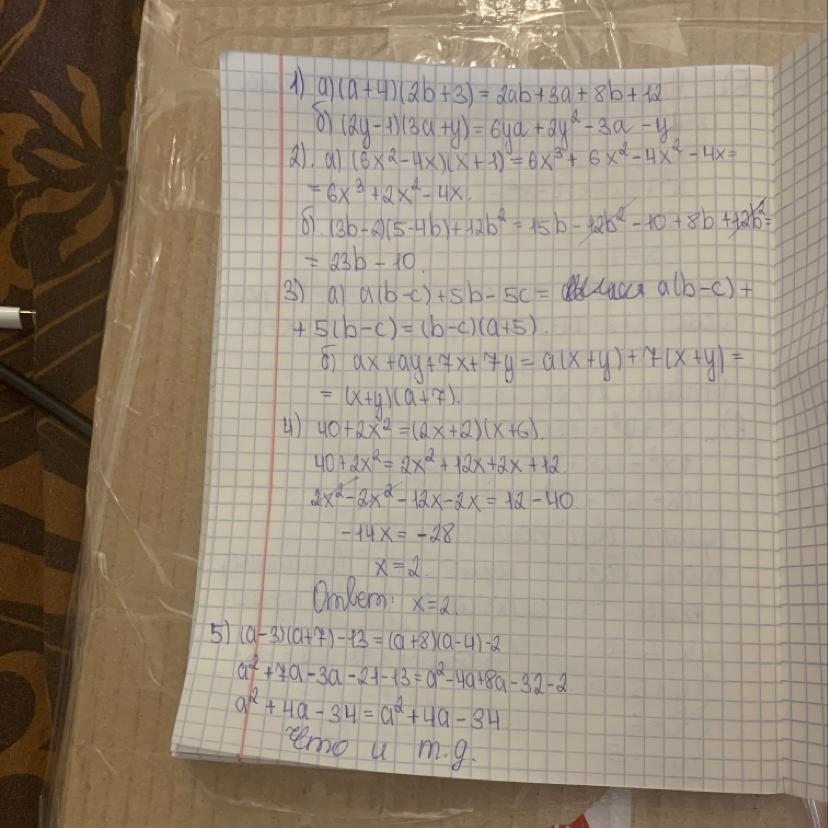 1) а) (a+4)(2b+3) = 2ab+3a+8b+12
б) (2y-1)(3a+y) = 6ya+2y²-3a-y
2). а) (6x²-4x)(x+1) = 6x³+6x²-4x²-4x=
=6x³+2x²-4x.
б) (3b-2)(5-4b)+12b² = 15b-12b²-10+8b+12b²=
= 23b-10.
3) а) a(b-c)+5b-5c = a(b-c)+
+5(b-c)=(b-c)(a+5).
б) ax+ay+7x+7y=a(x+y)+7(x+y)=
= (x+y)(a+7).
4) 40+2x²=(2x+2)(x+6).
40+2x²=2x²+12x+2x+12
2x²-2x²-12x-2x=12-40
-14x=-28
x=2.
Ответ: x=2.
5) (a-3)(a+7)-13=(a+8)(a-4)-2
a²+7a-3a-21-13=a²-4a+8a-32-2
a²+4a-34=a²+4a-34
Что и т.д.